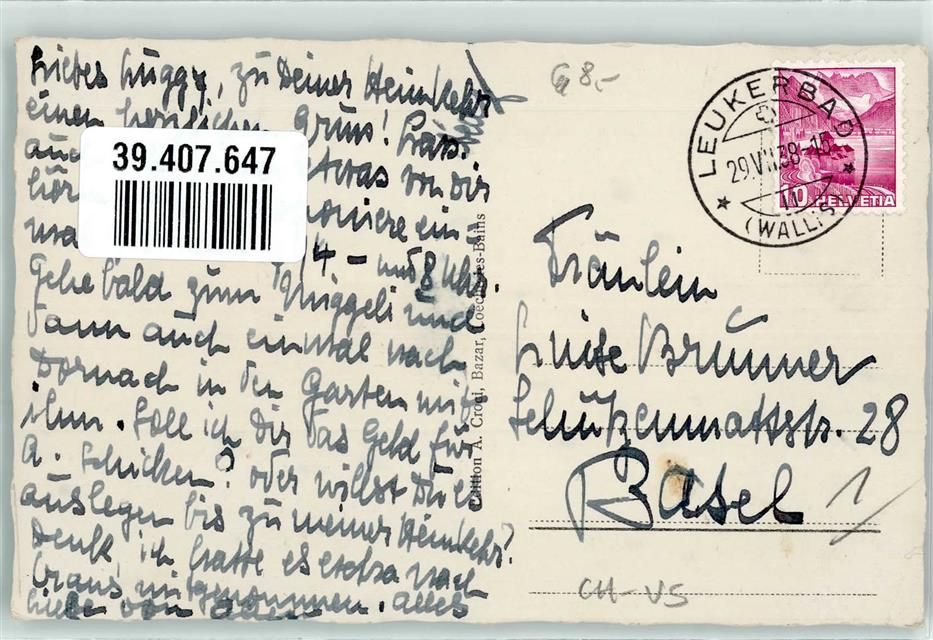 Liebes Luggy, zu Deiner Heimkehr
einen herzlichen Gruss! Lass
auch etwas von Dir
hör
ein
4 - und 8 Uhr.
Gehe bald zum Miggeli und
dann auch einmal nach
Dornach in den Garten mit
ihm. Soll ich Dir das Geld für
A. schicken? oder willst Du es
auslegen bis zu meiner Heimkehr?
Denk, ich hatte es extra nach
mitgenommen. Alles
liebe von
39.407.647
Edition A. Crogi, Bazar, Loèche-les-Bains
8.-
LEUKERBAD
29.VII.38-15
(WALLIS)
10 HELVETIA
Fräulein
Luise Brunner
Schützenmattstr. 28
Basel
CH-VS